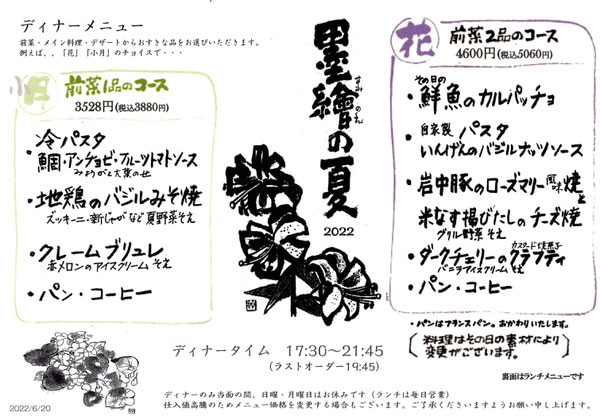 ディナーメニュー
前菜・メイン料理・デザートからおすきな品をお選びいただきます。
例えば、、「花」「小月」のチョイスで・・・
小月
前菜1品のコース
3528円(税込3880円)
冷パスタ
・鯛・アンチョビ・フルーツトマトソース
みょうがと大葉のせ
・地鶏のバジルみそ焼
ズッキーニ・新じゃがなど夏野菜そえ
・クレームブリュレ
赤メロンのアイスクリームそえ
・パン・コーヒー
墨繪の夏
すみのえ
2022
花
前菜2品のコース
4600円(税込5060円)
その日の
・鮮魚のカルパッチョ
自家製パスタ
・いんげんのバジルナッツソース
・岩中豚のローズマリー風味焼と
米なす揚びたしのチーズ焼
グリル野菜そえ
カスタード焼菓子
・ダークチェリーのクラフティ
バニラアイスクリームそえ
・パン・コーヒー
・パンはフランスパン。おかわりいたします。
料理はその日の素材により
変更がございます。
裏面はランチメニューです
ディナータイム 17:30~21:45
(ラストオーダー19:45)
2022/6/20
ディナーのみ当面の間、日曜・月曜日はお休みです(ランチは毎日営業)
仕入値高騰のためメニュー価格を変更する場合もございます。ご了承くださいますようお願い申し上げます。